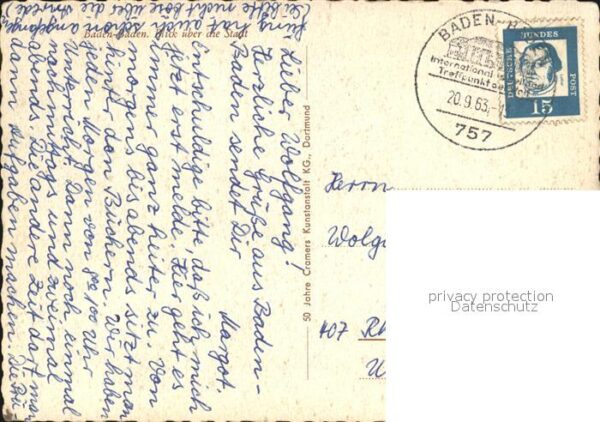 Baden-Baden. Blick über die Stadt
Lieber Wolfgang!
Herzliche Grüße aus Baden-
Baden sendet Dir
Margot.
Entschuldige bitte, daß ich mich
jetzt erst melde. Hier geht es
immer ganz heiter zu. Von
morgens bis abends sitzt man
hinter den Büchern. Wir haben
jeden Morgen von 8 10 Uhr
Unterricht. Dann noch einmal
nachmittags und zweimal
abends. Die andere Zeit darf man
dann Aufgaben
hat auch schon angefangen
Sei bitte nicht böse über die
50 Jahre Cramers Kunstanstalt KG., Dortmund
BADEN-
International
Treffpunkt
20.9.63
757
DEUTSCHE
BUNDES
POST
15
Herrn
Wolfg
407 Rh
privacy protection
Datenschutz